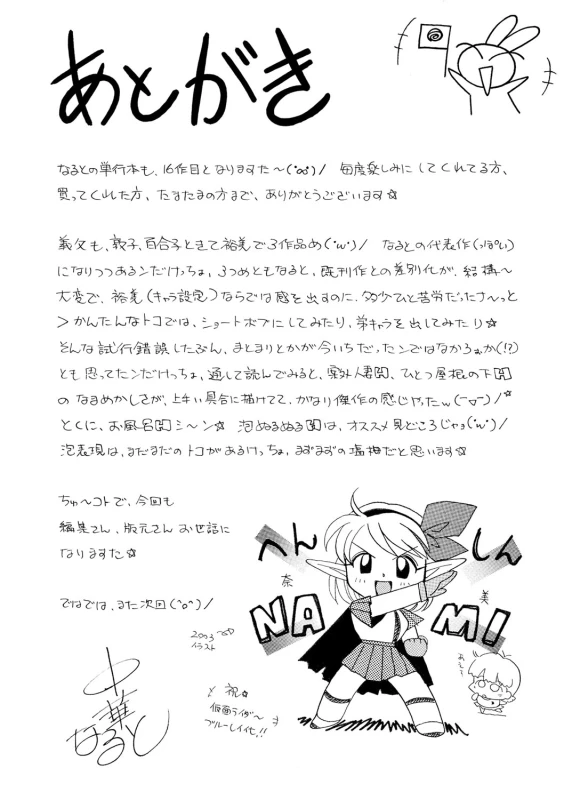 あとがき
なるとの単行本も、16作目となりますた～(°ος°)/ 毎度楽しみにしてくれてる方、
買ってくれた方、たまたまの方まで、ありがとうございます☆
義父も、敦子、百合子ときて裕美で3作品め(・w・)/ なるとの代表作(っぽい)
になりつつあるンだけっちょ、3つめともなると、既刊作との差別化が、結構～
大変で、裕美(キャラ設定)ならでは感を出すのに、多少ひと苦労だったナ～っと
＞かんたんなトコでは、ショートボブにしてみたり、弟キャラを出してみたり☆
そんな試行錯誤したぶん、まとまりとかが今いちだったンではなかろぉか(!?)
とも思ってたンだけっちょ、通して読んでみると、案外人妻H、ひとつ屋根の下H
のなまめかしさが、上手い具合に描けてて、かなり傑作の感じやったw(￣▽￣)/☆
とくに、お風呂Hシ～ン☆ 泡ぬるぬるHは、オススメ見どころじゃョ(・w・)/
泡表現は、まだまだのトコがあるけっちょ、まずまずの塩梅だと思います☆
ちゅ～コトで、今回も
編集さん、版元さんお世話に
なりますた☆
ではでは、また次回(^o^)/
へん しん
奈 美
NA MI
あえ～
2003
イラスト
中華なると
と 祝☆
仮面ライダ～
ブルーレイ化!!